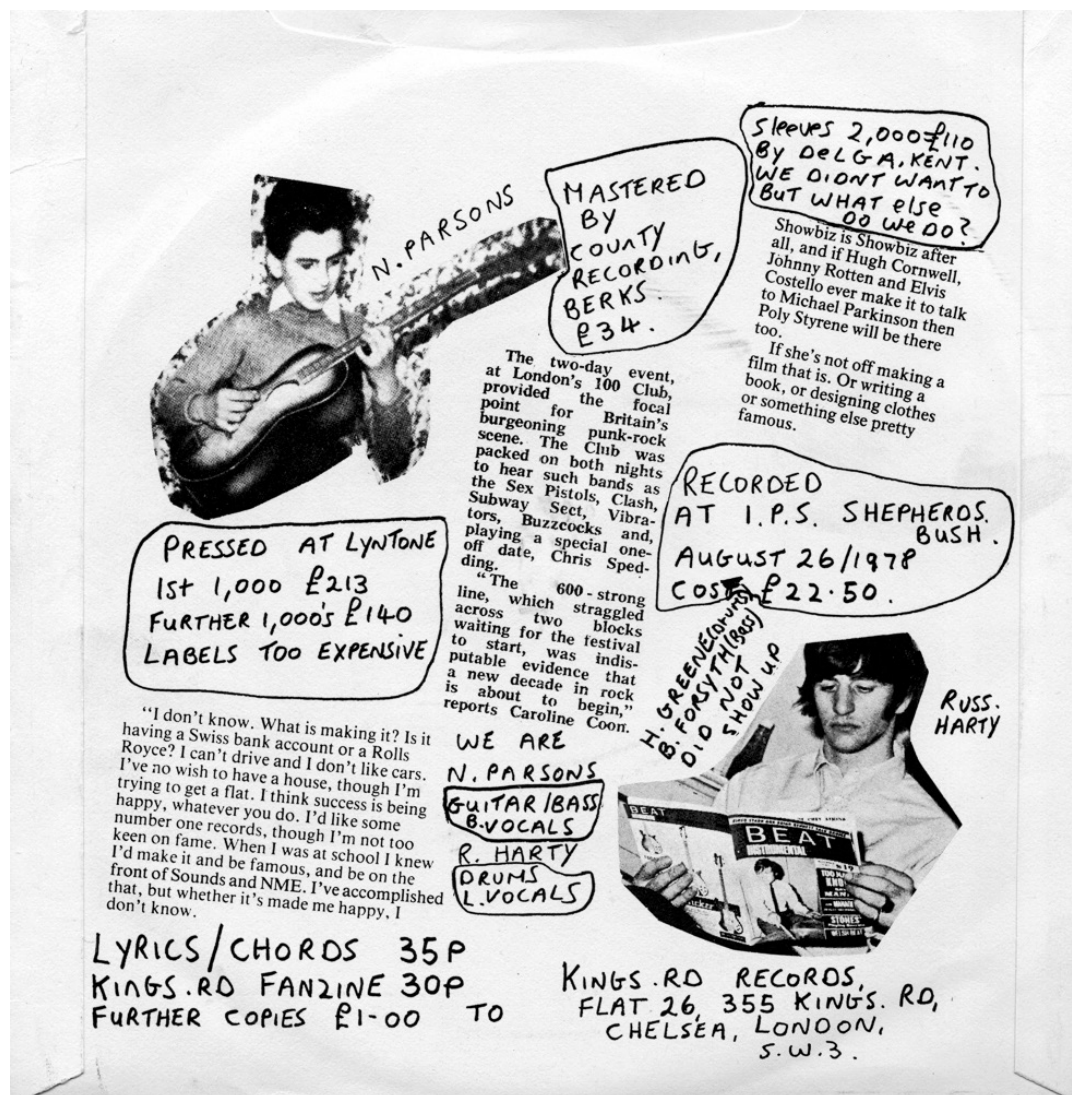 Sleeves 2,000 £110
By DeLGA, KENT.
WE DIDNT WANT TO
BUT WHAT else
DO WE DO?
N. PARSONS
MASTERED
BY
COUNTY
RECORDING,
BERKS.
£34.
Showbiz is Showbiz after
all, and if Hugh Cornwell,
Johnny Rotten and Elvis
Costello ever make it to talk
to Michael Parkinson then
Poly Styrene will be there
too.
If she's not off making a
film that is. Or writing a
book, or designing clothes
or something else pretty
famous.
The two-day event,
at London's 100 Club,
provided the focal
point for Britain's
burgeoning punk-rock
scene. The Club was
packed on both nights
to hear such bands as
the Sex Pistols, Clash,
Subway Sect, Vibra-
tors, Buzzcocks and,
playing a special one-
off date, Chris Sped-
ding.
"The 600-strong
line, which straggled
across two blocks
waiting for the festival
to start, was indis-
putable evidence that
a new decade in rock
is about to begin,"
reports Caroline Coon.
RECORDED
AT I.P.S. SHEPHERDS.
BUSH.
AUGUST 26/1978
COST £22.50.
PRESSED AT LYNTONE
1st 1,000 £213
FURTHER 1,000's £140
LABELS TOO EXPENSIVE
H. GREENE (DRUMS)
B. FORSYTH (BASS)
DID NOT
SHOW UP
RUSS.
HARTY
BEAT
BEAT
INSTRUMENTAL
STONES'
"I don't know. What is making it? Is it
having a Swiss bank account or a Rolls
Royce? I can't drive and I don't like cars.
I've no wish to have a house, though I'm
trying to get a flat. I think success is being
happy, whatever you do. I'd like some
number one records, though I'm not too
keen on fame. When I was at school I knew
I'd make it and be famous, and be on the
front of Sounds and NME. I've accomplished
that, but whether it's made me happy, I
don't know.
WE ARE
N. PARSONS
GUITAR/BASS
B. VOCALS
R. HARTY
DRUMS
L. VOCALS
LYRICS/CHORDS 35P
KINGS.RD FANZINE 30P
FURTHER COPIES £1-00 TO
KINGS.RD RECORDS,
FLAT 26, 355 KINGS. RD,
CHELSEA, LONDON,
S.W.3.